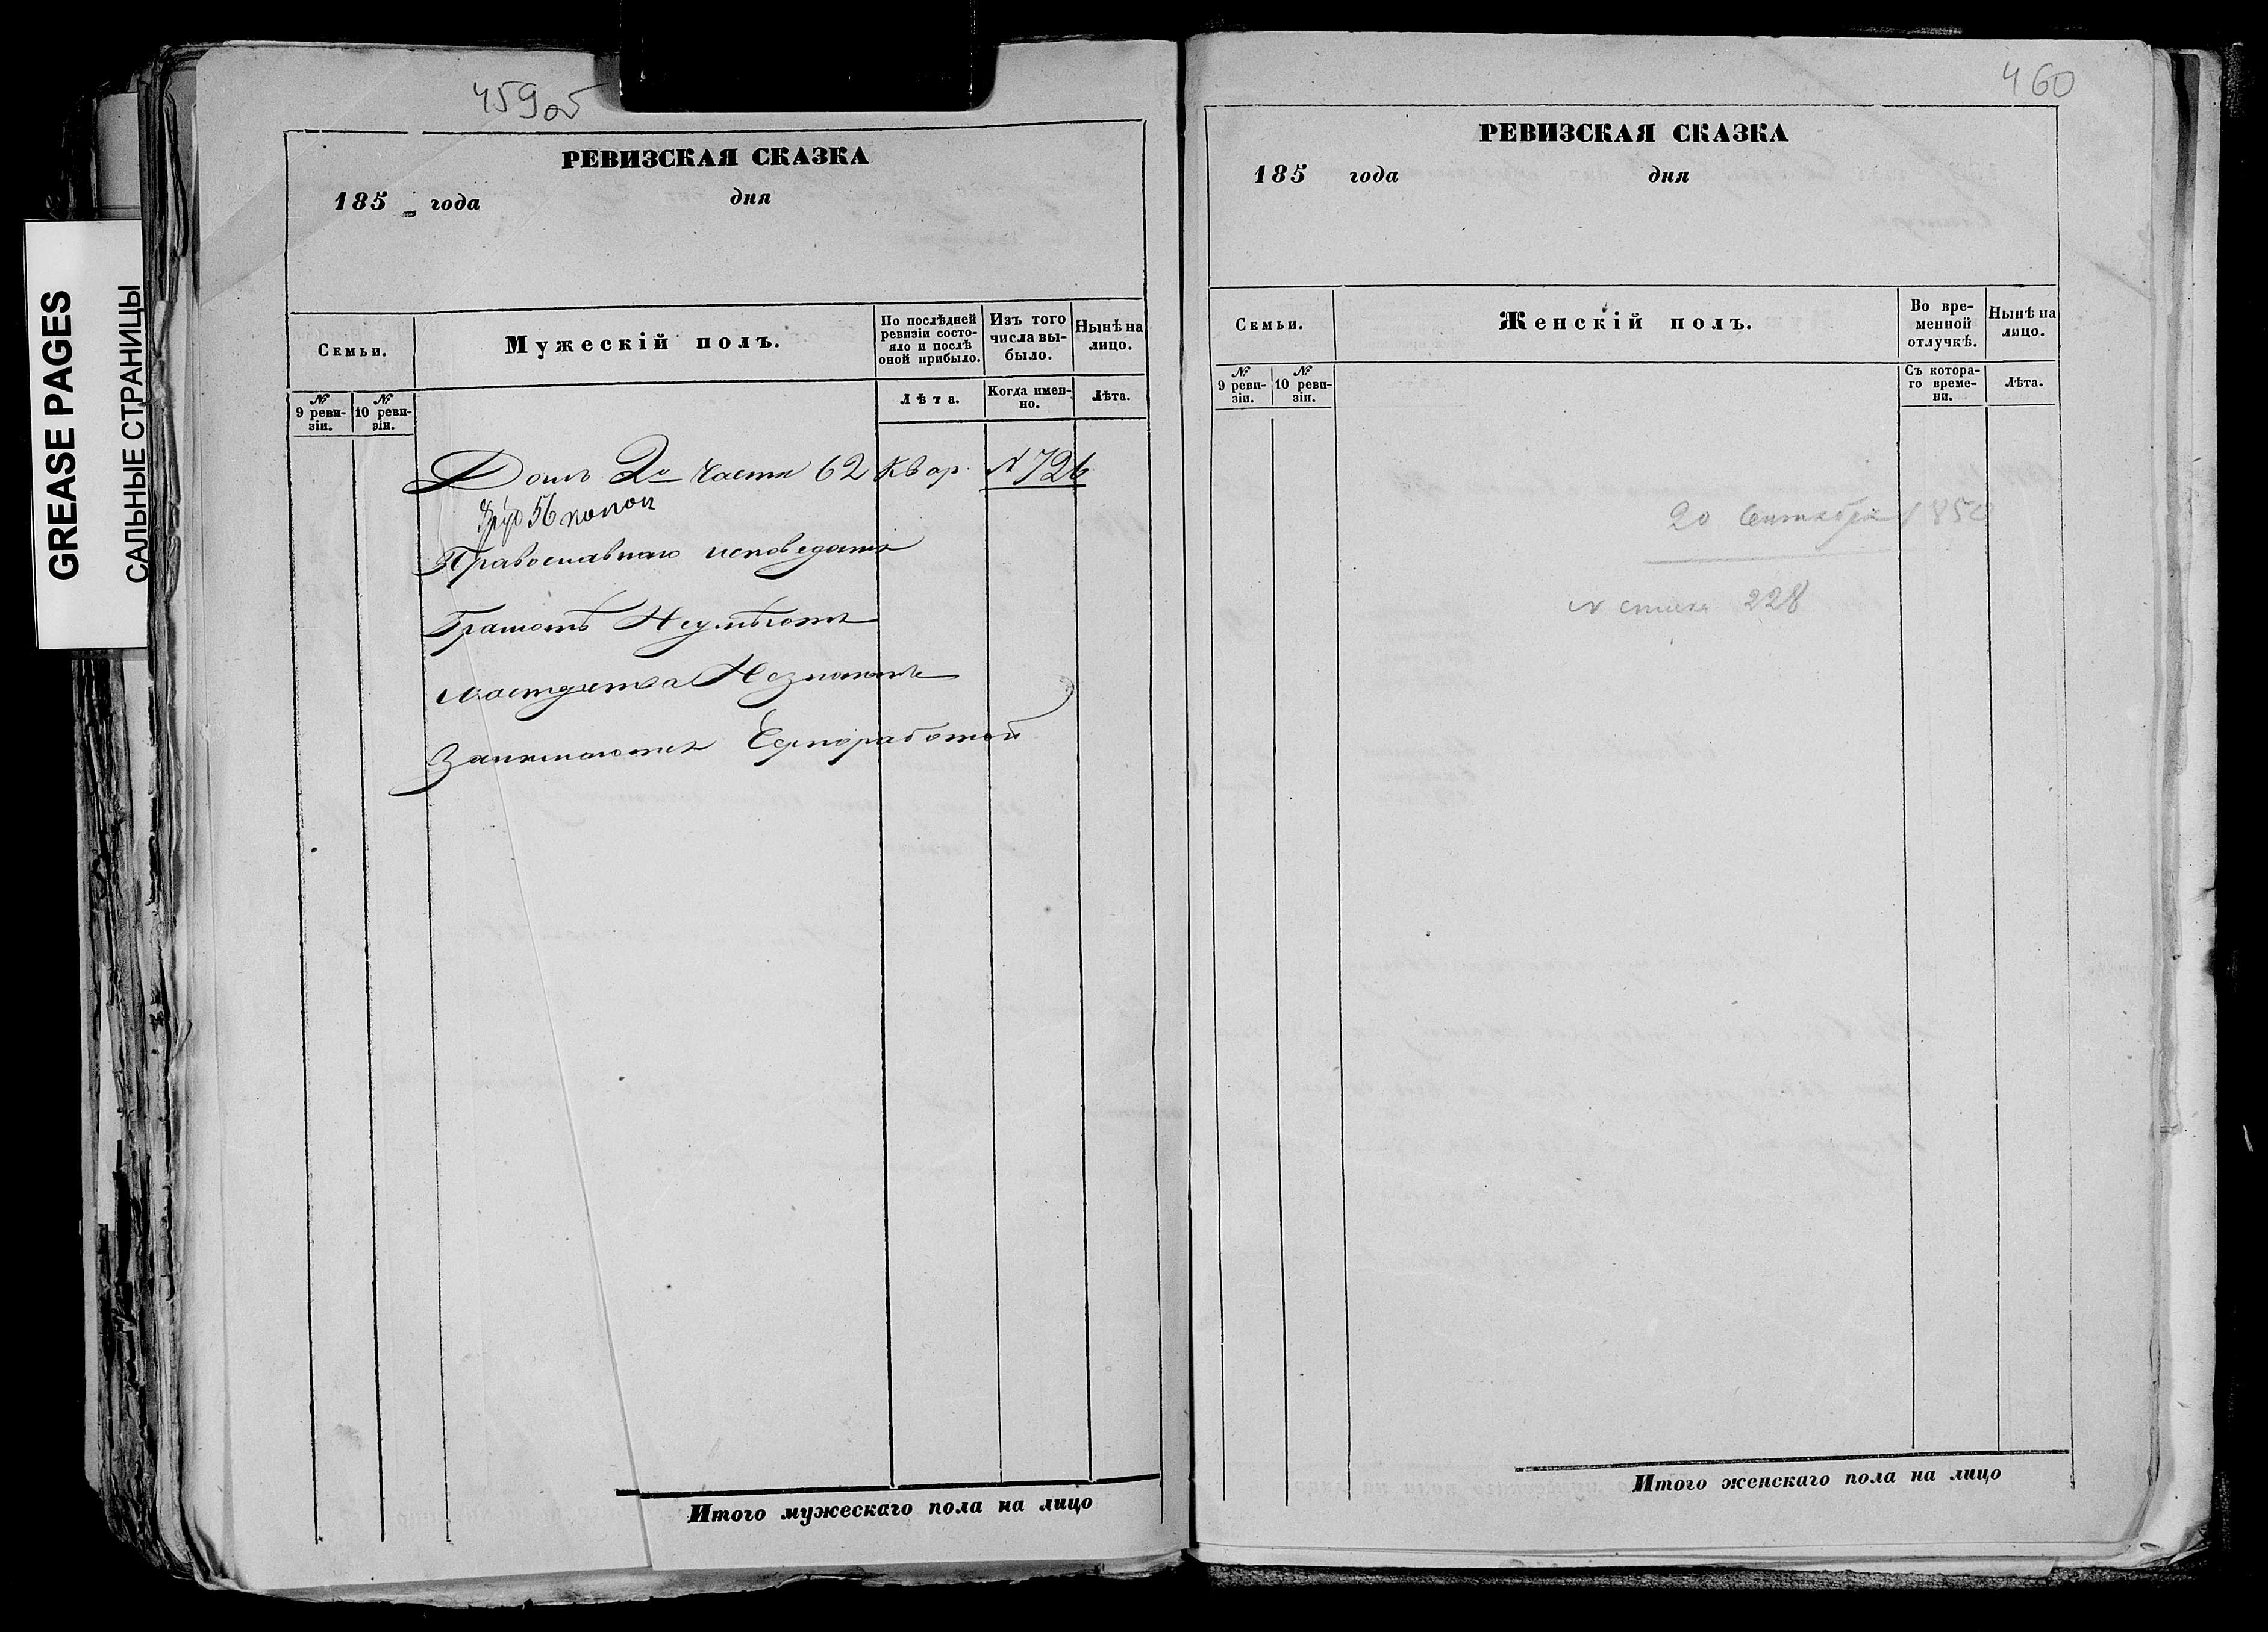 GREASE PAGES
САЛЬНЫЕ СТРАНИЦЫ
459об
РЕВИЗСКАЯ СКАЗКА
185 года дня
Семьи.
Мужескій полъ.
По послѣдней ревизіи состояло и послѣ оной прибыло.
Изъ того числа выбыло.
Нынѣ на лицо.
№ 9 ревизіи.
№ 10 ревизіи.
Лѣта.
Когда именно.
Лѣта.
Домъ 2й части 62 квар. N 726
56 копѣ
Православнаго исповеданія
Грамотѣ Неумѣютъ
мастерства Незнаютъ
Занимаются Черноработой
Итого мужескаго пола на лицо
460
РЕВИЗСКАЯ СКАЗКА
185 года дня
Семьи.
Женскій полъ.
Во временной отлучкѣ.
Нынѣ на лицо.
№ 9 ревизіи.
№ 10 ревизіи.
Съ котораго времени.
Лѣта.
20 Сентября 1850
N списка 228
Итого женскаго пола на лицо